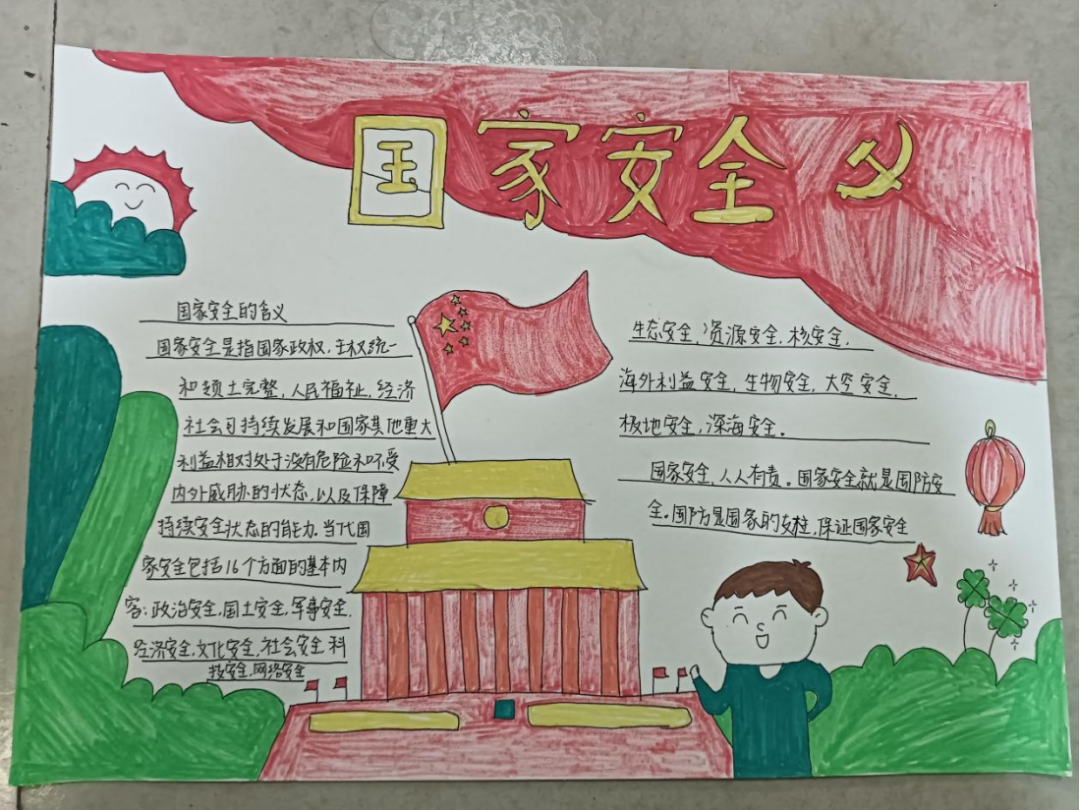 国家安全
国家安全的含义
国家安全是指国家政权，主权统一
和领土完整，人民福祉，经济
社会可持续发展和国家其他重大
利益相对处于没有危险和不受
内外威胁的状态，以及保障
持续安全状态的能力。当代国
家安全包括16个方面的基本内
容：政治安全，国土安全，军事安全，
经济安全，文化安全，社会安全，科
技安全，网络安全
生态安全，资源安全，核安全，
海外利益安全，生物安全，太空安全，
极地安全，深海安全。
国家安全，人人有责。国家安全就是国防安
全。国防是国家的支柱，保证国家安全